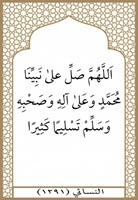 اَللَّهُمَّ صَلِّ عَلىٰ نَبِيِّنَا
مُحَمَّدٍ وَعَلىٰ آلِهِ وَصَحْبِهِ
وَسَلِّمْ تَسْلِيمًا كَثِيرًا
النسائي (١٣٩١)